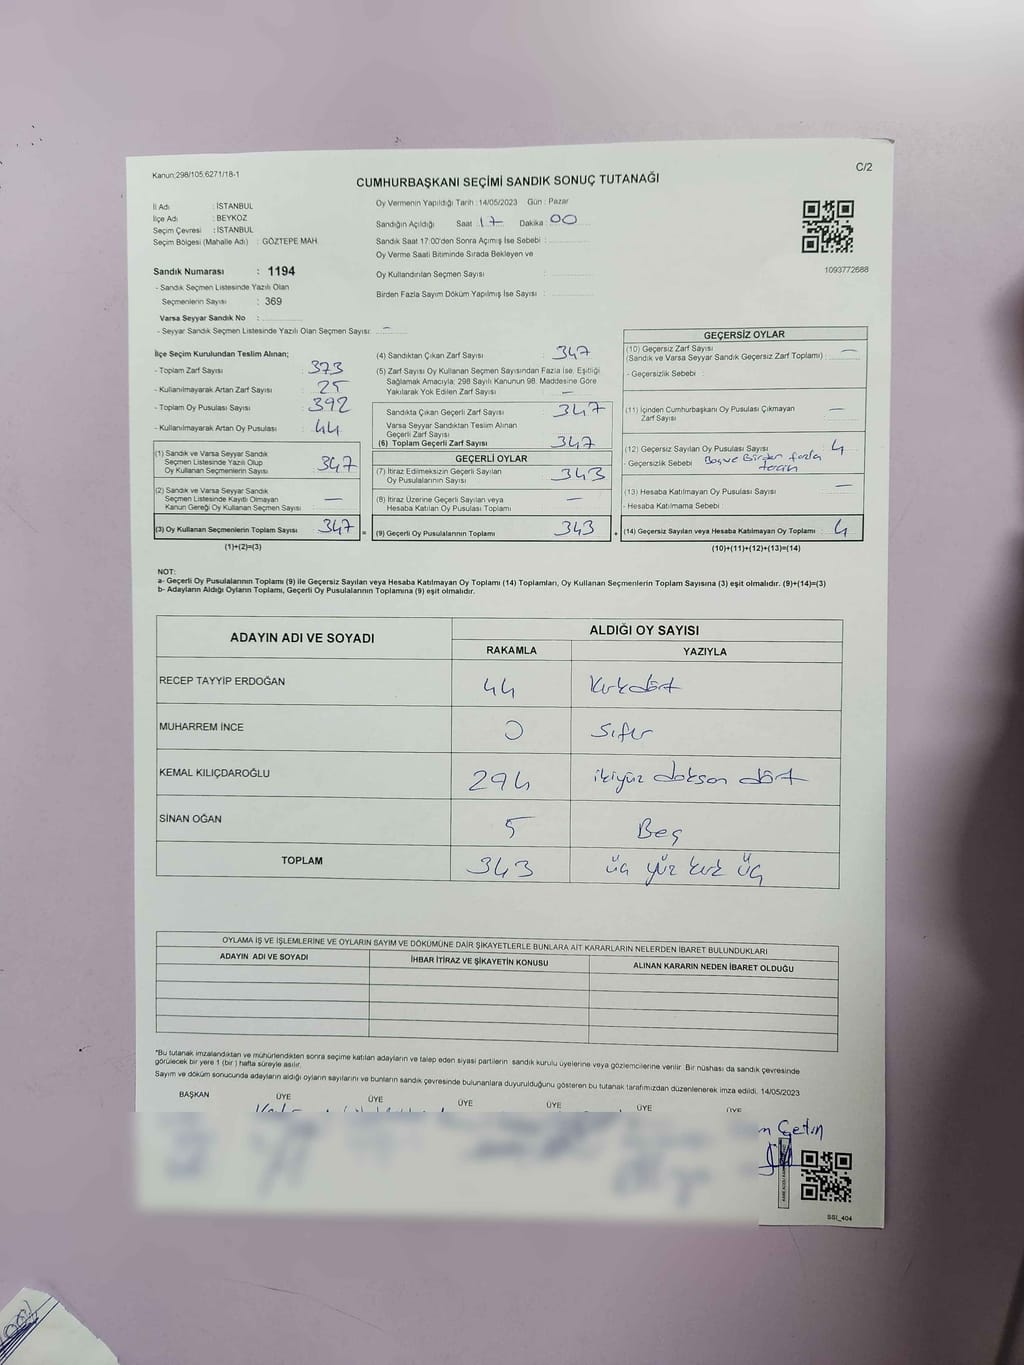 Kanun;298/105;6271/18-1
C/2
CUMHURBAŞKANI SEÇİMİ SANDIK SONUÇ TUTANAĞI
İl Adı : İSTANBUL
İlçe Adı : BEYKOZ
Seçim Çevresi : İSTANBUL
Seçim Bölgesi (Mahalle Adı) : GÖZTEPE MAH.
Sandık Numarası : 1194
- Sandık Seçmen Listesinde Yazılı Olan
Seçmenlerin Sayısı : 369
Varsa Seyyar Sandık No :
- Seyyar Sandık Seçmen Listesinde Yazılı Olan Seçmen Sayısı: —
Oy Vermenin Yapıldığı Tarih : 14/05/2023 Gün : Pazar
Sandığın Açıldığı Saat 17 Dakika 00
Sandık Saat 17:00'den Sonra Açımış İse Sebebi :
Oy Verme Saati Bitiminde Sırada Bekleyen ve
Oy Kullandırılan Seçmen Sayısı :
Birden Fazla Sayım Döküm Yapılmış İse Sayısı :
1093772688
İlçe Seçim Kurulundan Teslim Alınan;
- Toplam Zarf Sayısı : 373
- Kullanılmayarak Artan Zarf Sayısı : 25
- Toplam Oy Pusulası Sayısı : 392
- Kullanılmayarak Artan Oy Pusulası : 44
(1) Sandık ve Varsa Seyyar Sandık
Seçmen Listesinde Yazılı Olup
Oy Kullanan Seçmenlerin Sayısı : 347
(2) Sandık ve Varsa Seyyar Sandık
Seçmen Listesinde Kayıtlı Olmayan
Kanun Gereği Oy Kullanan Seçmen Sayısı : —
(3) Oy Kullanan Seçmenlerin Toplam Sayısı : 347
(1)+(2)=(3)
(4) Sandıktan Çıkan Zarf Sayısı : 347
(5) Zarf Sayısı Oy Kullanan Seçmen Sayısından Fazla İse, Eşitliği
Sağlamak Amacıyla; 298 Sayılı Kanunun 98. Maddesine Göre
Yakılarak Yok Edilen Zarf Sayısı : —
Sandıkta Çıkan Geçerli Zarf Sayısı : 347
Varsa Seyyar Sandıktan Teslim Alınan
Geçerli Zarf Sayısı :
(6) Toplam Geçerli Zarf Sayısı : 347
GEÇERLİ OYLAR
(7) İtiraz Edilmeksizin Geçerli Sayılan
Oy Pusulalarının Sayısı : 343
(8) İtiraz Üzerine Geçerli Sayılan veya
Hesaba Katılan Oy Pusulası Toplamı : —
= (9) Geçerli Oy Pusulalarının Toplamı : 343
GEÇERSİZ OYLAR
(10) Geçersiz Zarf Sayısı
(Sandık ve Varsa Seyyar Sandık Geçersiz Zarf Toplamı) : —
- Geçersizlik Sebebi :
(11) İçinden Cumhurbaşkanı Oy Pusulası Çıkmayan
Zarf Sayısı : —
(12) Geçersiz Sayılan Oy Pusulası Sayısı : 4
- Geçersizlik Sebebi : Boş ve Birden fazla
(13) Hesaba Katılmayan Oy Pusulası Sayısı : —
- Hesaba Katılmama Sebebi :
+ (14) Geçersiz Sayılan veya Hesaba Katılmayan Oy Toplamı : 4
(10)+(11)+(12)+(13)=(14)
NOT:
a- Geçerli Oy Pusulalarının Toplamı (9) ile Geçersiz Sayılan veya Hesaba Katılmayan Oy Toplamı (14) Toplamları, Oy Kullanan Seçmenlerin Toplam Sayısına (3) eşit olmalıdır. (9)+(14)=(3)
b- Adayların Aldığı Oyların Toplamı, Geçerli Oy Pusulalarının Toplamına (9) eşit olmalıdır.
ADAYIN ADI VE SOYADI
ALDIĞI OY SAYISI
RAKAMLA YAZIYLA
RECEP TAYYİP ERDOĞAN 44 Kırkdört
MUHARREM İNCE 0 Sıfır
KEMAL KILIÇDAROĞLU 294 ikiyüz doksan dört
SİNAN OĞAN 5 Beş
TOPLAM 343 üç yüz kırk üç
OYLAMA İŞ VE İŞLEMLERİNE VE OYLARIN SAYIM VE DÖKÜMÜNE DAİR ŞİKAYETLERLE BUNLARA AİT KARARLARIN NELERDEN İBARET BULUNDUKLARI
ADAYIN ADI VE SOYADI İHBAR İTİRAZ VE ŞİKAYETİN KONUSU ALINAN KARARIN NEDEN İBARET OLDUĞU
*Bu tutanak imzalandıktan ve mühürlendikten sonra seçime katılan adayların ve talep eden siyasi partilerin sandık kurulu üyelerine veya gözlemcilerine verilir. Bir nüshası da sandık çevresinde
görülecek bir yere 1 (bir) hafta süreyle asılır.
Sayım ve döküm sonucunda adayların aldığı oyların sayılarını ve bunların sandık çevresinde bulunanlara duyurulduğunu gösteren bu tutanak tarafımızdan düzenlenerek imza edildi. 14/05/2023
BAŞKAN ÜYE ÜYE ÜYE ÜYE ÜYE ÜYE
Çetin
SSI_404